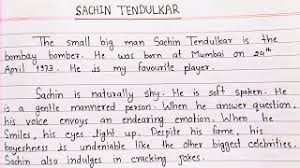 SACHIN TENDULKAR
The small big man Sachin Tendulkar is the
bombay bomber. He was born at Mumbai on 24th
April 1973. He is my favourite player.
Sachin is naturally shy. He is soft spoken. He
is a gentle mannered person. When he answer question,
his voice envoys an endearing emotion. When he
Smiles, his eyes light up. Despite his fame, his
boyeshness is undeniable like the other biggest celebrities.
Sachin also indulges in cracking jokes.